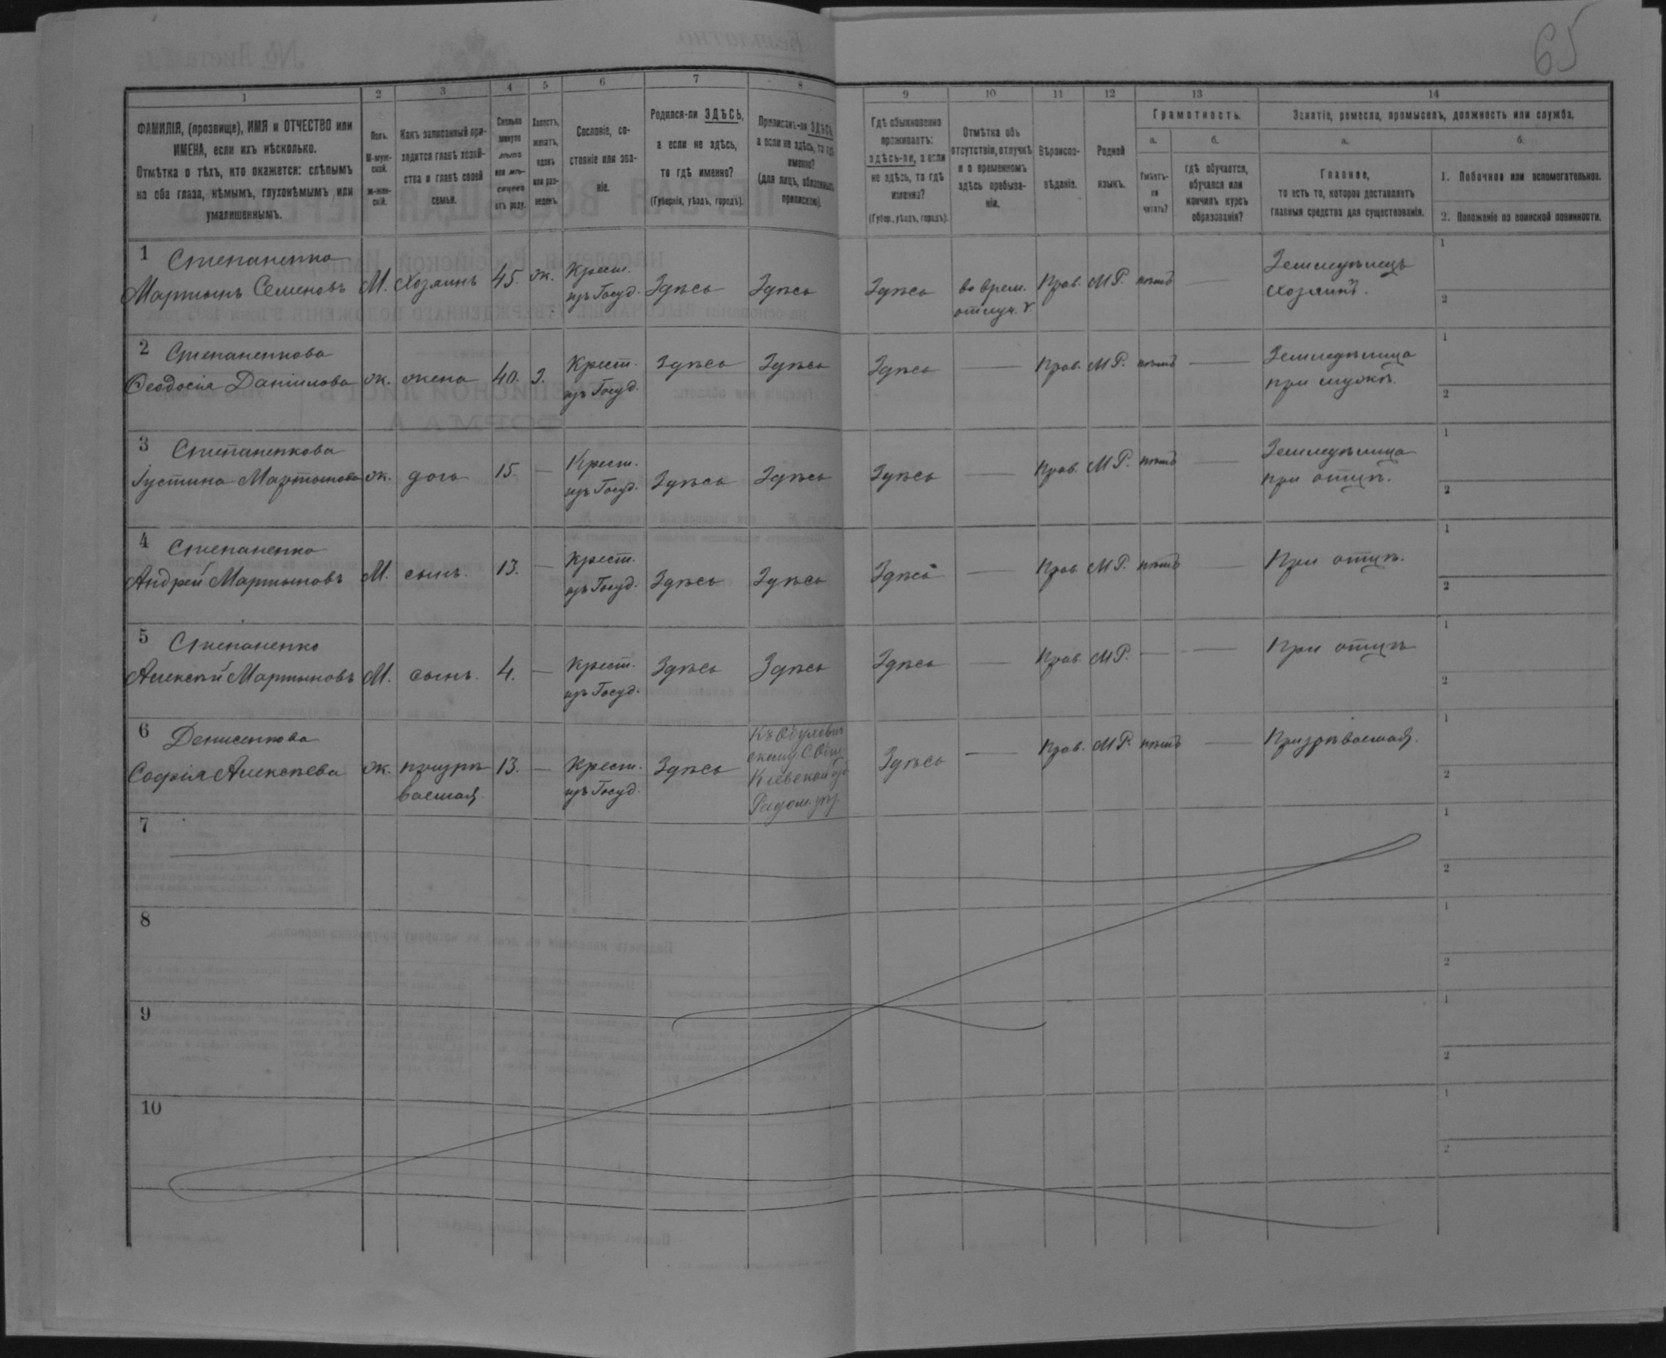 65
1 2 3 4 5 6 7 8 9 10 11 12 13 14
ФАМИЛІЯ, (прозвище), ИМЯ и ОТЧЕСТВО или
ИМЕНА, если ихъ нѣсколько.
Отмѣтка о тѣхъ, кто окажется: слѣпымъ
на оба глаза, нѣмымъ, глухонѣмымъ или
умалишеннымъ.
Полъ.
М-муж-
ской.
ж-жен-
скій.
Какъ записанный при-
ходится главѣ хозяй-
ства и главѣ своей
семьи.
Сколько
минуло
лѣтъ
или мѣ-
сяцевъ
отъ роду.
Холостъ,
женатъ,
вдовъ
или раз-
веденъ.
Сословіе, со-
стояніе или зва-
ніе.
Родился-ли ЗДѢСЬ,
а если не здѣсь,
то гдѣ именно?
(Губернія, уѣздъ, городъ).
Приписанъ-ли ЗДѢСЬ,
а если не здѣсь, то гдѣ
именно?
(Для лицъ, обязанныхъ
припискою).
Гдѣ обыкновенно
проживаетъ:
здѣсь-ли, а если
не здѣсь, то гдѣ
именно?
(Губер., уѣздъ, городъ).
Отмѣтка объ
отсутствіи, отлучкѣ
и о временномъ
здѣсь пребыва-
ніи.
Вѣроиспо-
вѣданіе.
Родной
языкъ.
Грамотность.
а. б.
Умѣетъ-
ли
читать?
гдѣ обучается,
обучался или
кончилъ курсъ
образованія?
Занятіе, ремесло, промыселъ, должность или служба.
а. б.
Главное,
то есть то, которое доставляетъ
главныя средства для существованія.
1. Побочное или вспомогательное.
2. Положеніе по воинской повинности.
1 Степаненко
Мартынъ Семеновъ М. Хозяинъ 45. ж. Крест. изъ Госуд. Здѣсь Здѣсь Здѣсь во врем. отлуч. Прав. М.Р. нѣтъ — Земледѣлецъ хозяинъ. 1 2
2 Степаненкова
Ѳеодосія Данилова ж. жена 40. З. Крест. изъ Госуд. Здѣсь Здѣсь Здѣсь — Прав. М.Р. нѣтъ — Земледѣлица при мужѣ. 1 2
3 Степаненкова
Іустина Мартынова ж. дочь 15. — Крест. изъ Госуд. Здѣсь Здѣсь Здѣсь — Прав. М.Р. нѣтъ — Земледѣлица при отцѣ. 1 2
4 Степаненко
Андрей Мартыновъ М. сынъ. 13. — Крест. изъ Госуд. Здѣсь Здѣсь Здѣсь — Прав. М.Р. нѣтъ — При отцѣ. 1 2
5 Степаненко
Алексѣй Мартыновъ М. сынъ. 4. — Крест. изъ Госуд. Здѣсь Здѣсь Здѣсь — Прав. М.Р. — — При отцѣ 1 2
6 Денисенкова
Софія Алексѣева ж. призрѣваемая. 13. — Крест. изъ Госуд. Здѣсь Кіевской Губ. Радом. уѣз. Здѣсь — Прав. М.Р. нѣтъ — Призрѣваемая. 1 2
7 1 2
8 1 2
9 1 2
10 1 2